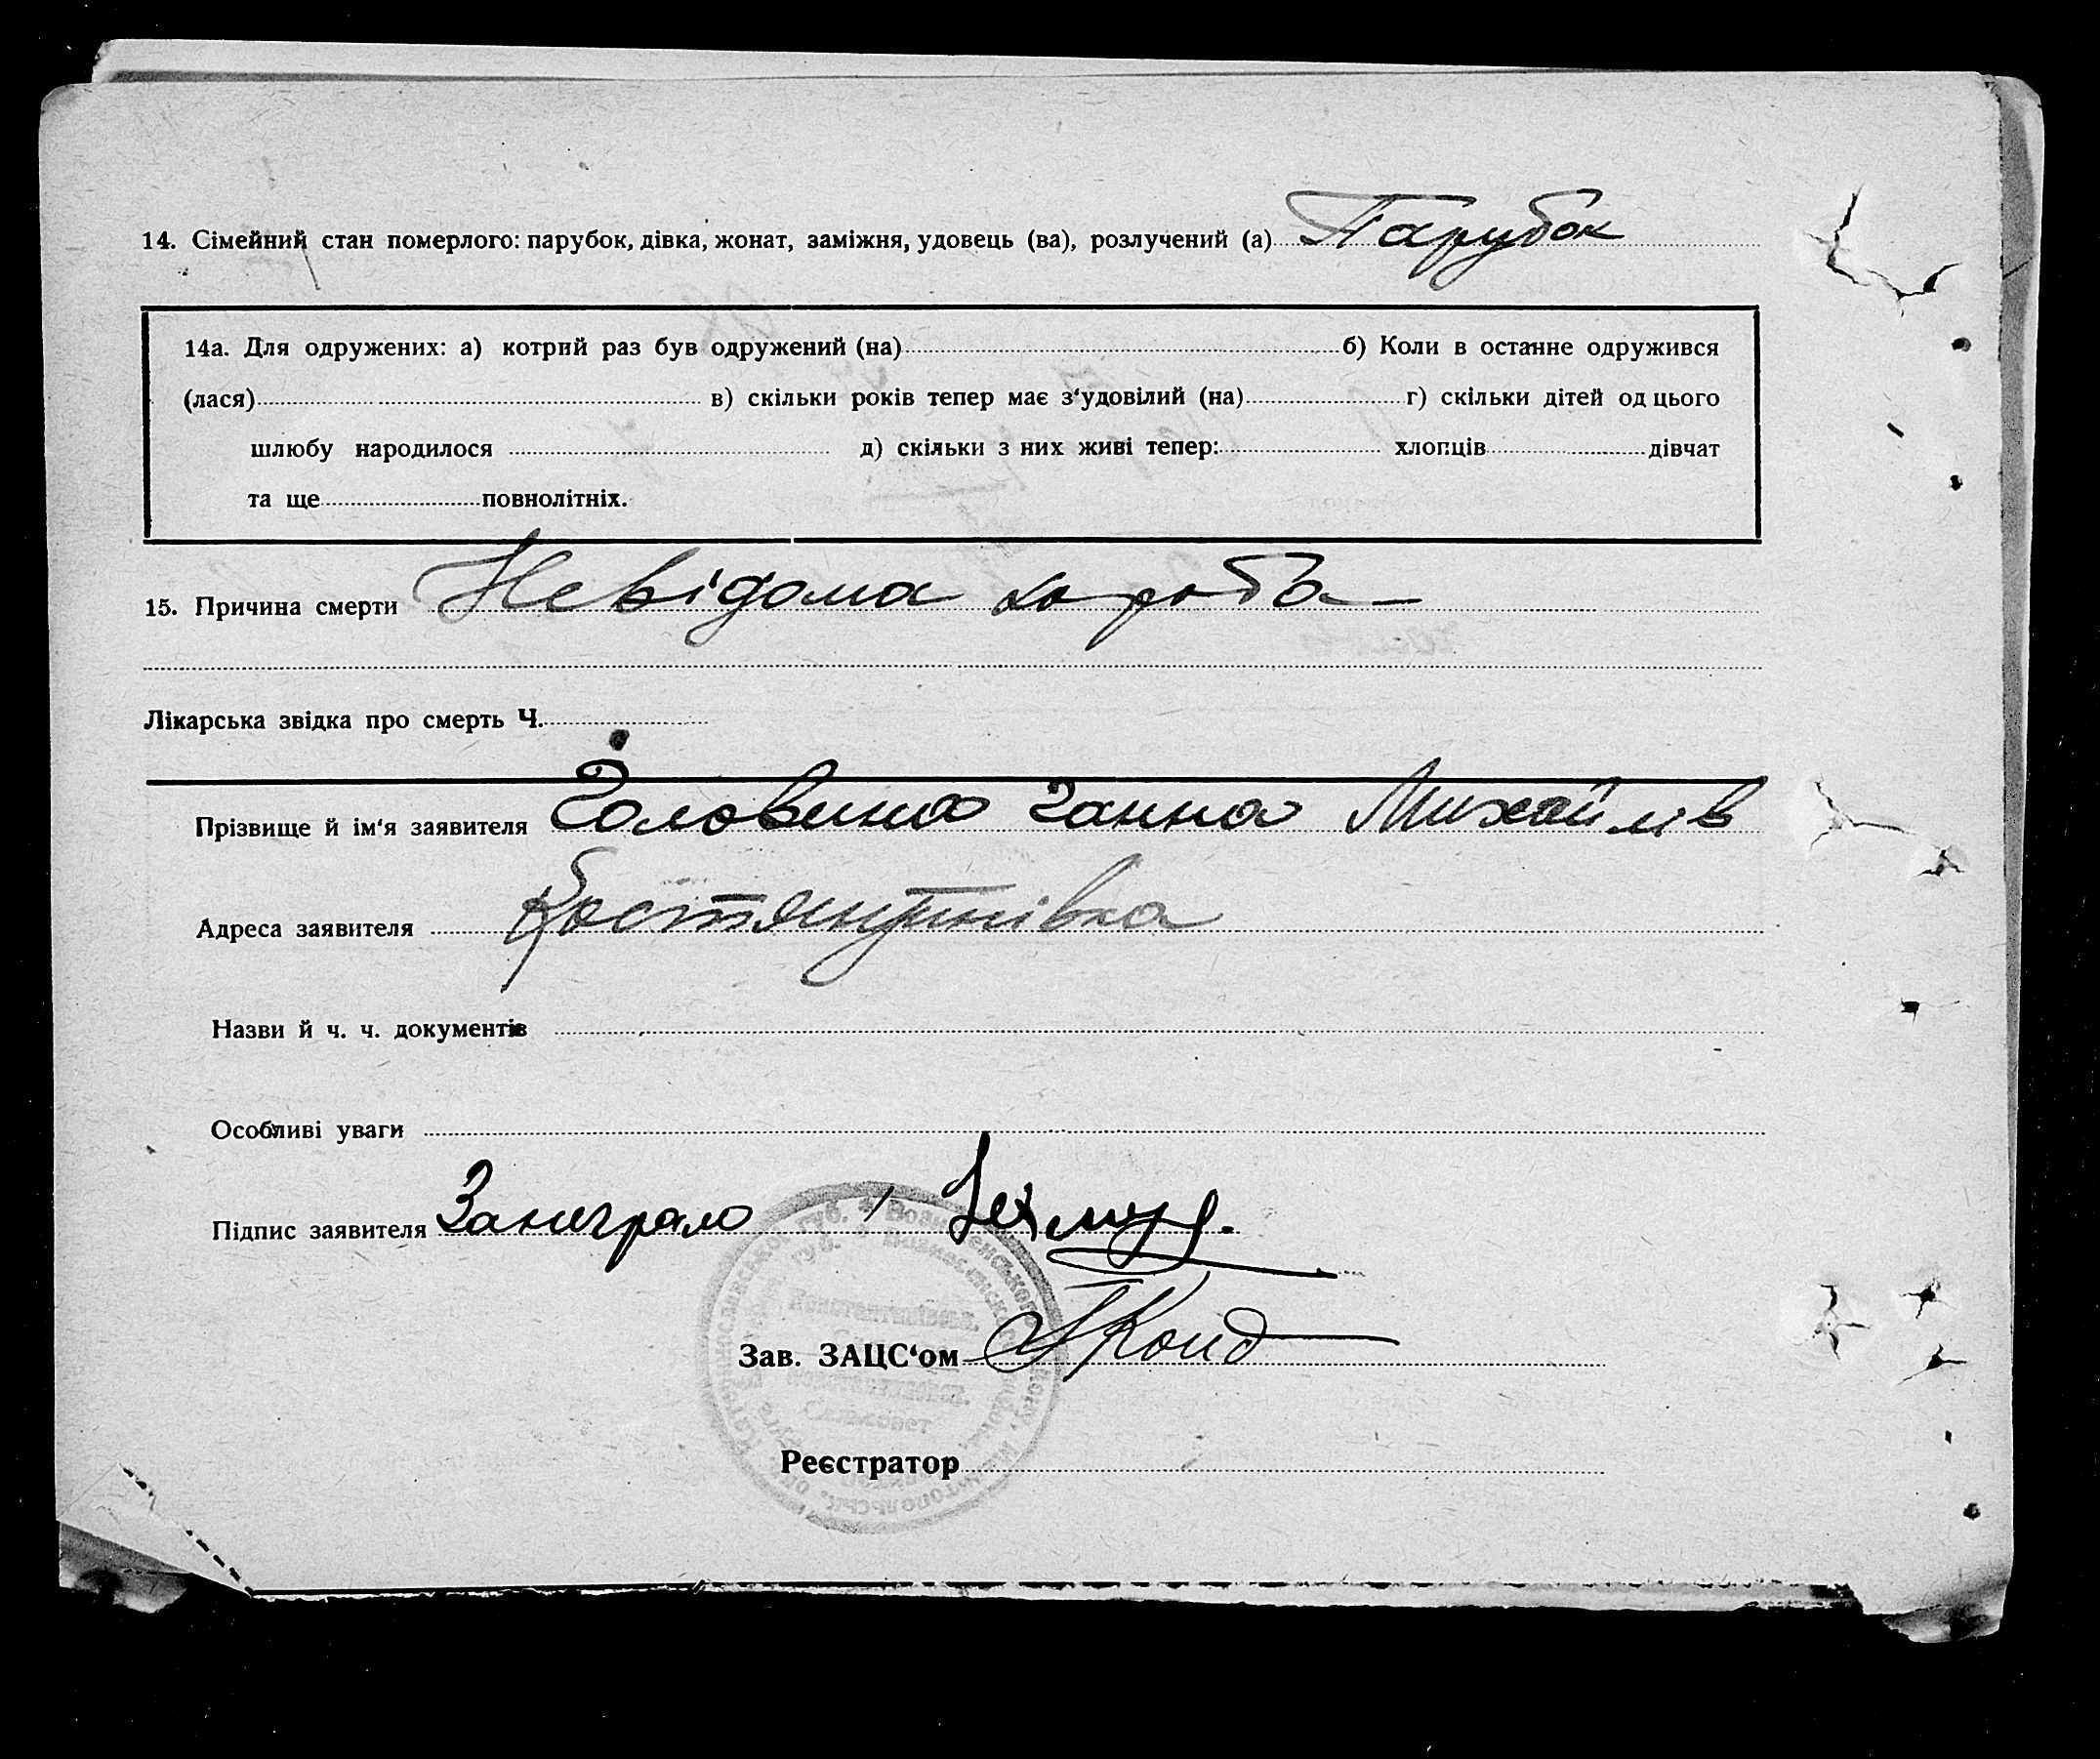 14. Сімейний стан померлого: парубок, дівка, жонат, заміжня, удовець (ва), розлучений (а) Парубок
14а. Для одружених: а) котрий раз був одружений (на) б) Коли в останне одружився
(лася) в) скільки років тепер має з‘удовілий (на) г) скільки дітей од цього
шлюбу народилося д) скільки з них живі тепер: хлопців дівчат
та ще повнолітніх.
15. Причина смерти Невідома хороба
Лікарська звідка про смерть Ч.
Прізвище й ім‘я заявителя Головина Ганна Михайлів
Адреса заявителя Костянтинівка
Назви й ч. ч. документів
Особливі уваги
Підпис заявителя
Зав. ЗАЦС‘ом
Реєстратор